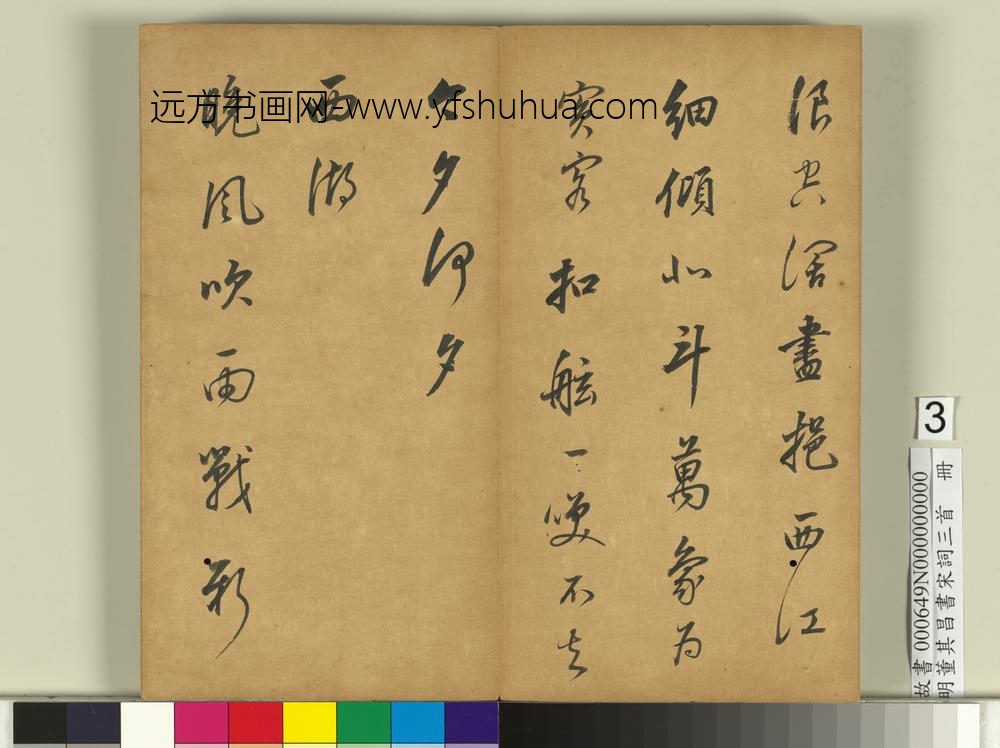 浪空濶盡挹西江
細傾北斗萬象為
賓客扣舷一咲不知
今夕何夕
西湖
晚風吹雨戰新
远方书画网-www.yfshuhua.com
3
故書 000649N000000000
明董其昌書宋詞三首 冊